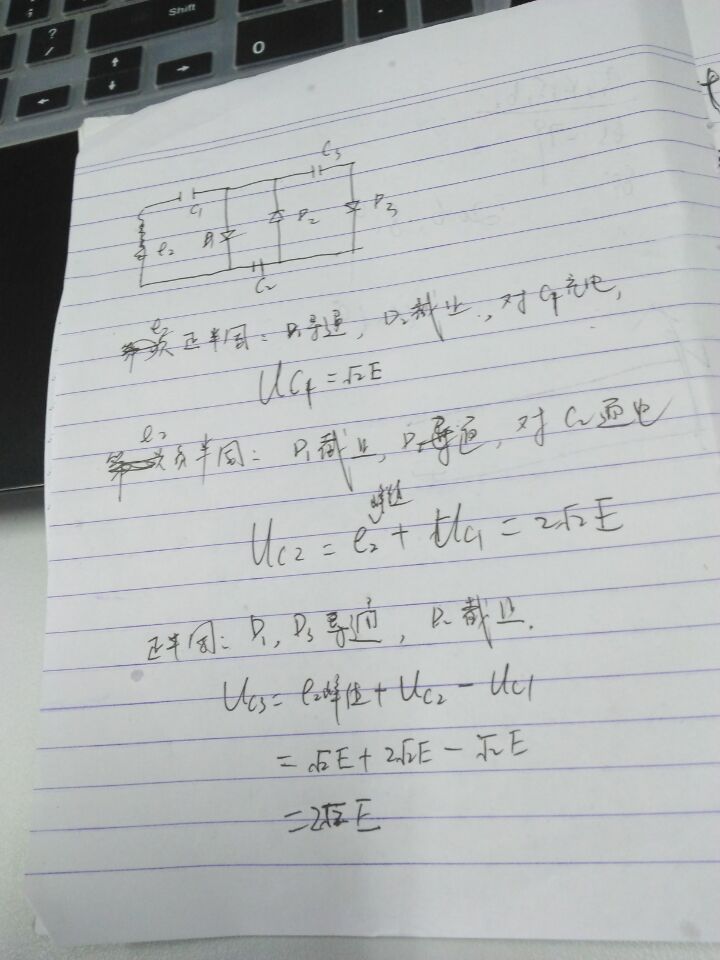 Shift
?
/
0
C3
C1
e2
D1
D2
D3
C2
e2
正半周: D1导通, D2截止, 对C1充电,
UC1 = √2E
e2
负半周: D1截止, D2导通, 对C2通电
峰值
UC2 = e2 + UC1 = 2√2E
正半周: D1, D3导通, D2截止.
UC3 = e2峰值 + UC2 - UC1
= √2E + 2√2E - √2E
= 2√2E